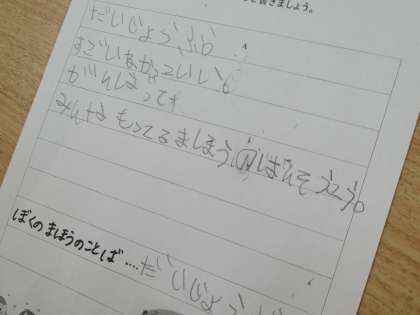 書きましょう。
だいじょうぶ
かっこいい。
がんばって
みんなもってるまほうのばんそうこう。
ぼくのまほうのことば‥‥だいじょう